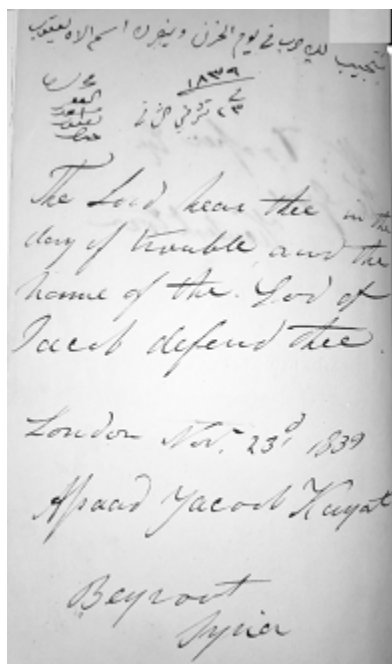 يستجيب لك الرب في يوم الحزن وينصرك اسم الاه يعقوب
١٨٣٩
في ٢٣
يعقوب
The Lord hear thee in the
day of trouble, and the
name of the God of
Jacob defend thee.
London Nov. 23d, 1839
Assaad Yacoob Kayat
Beyrout
Syria